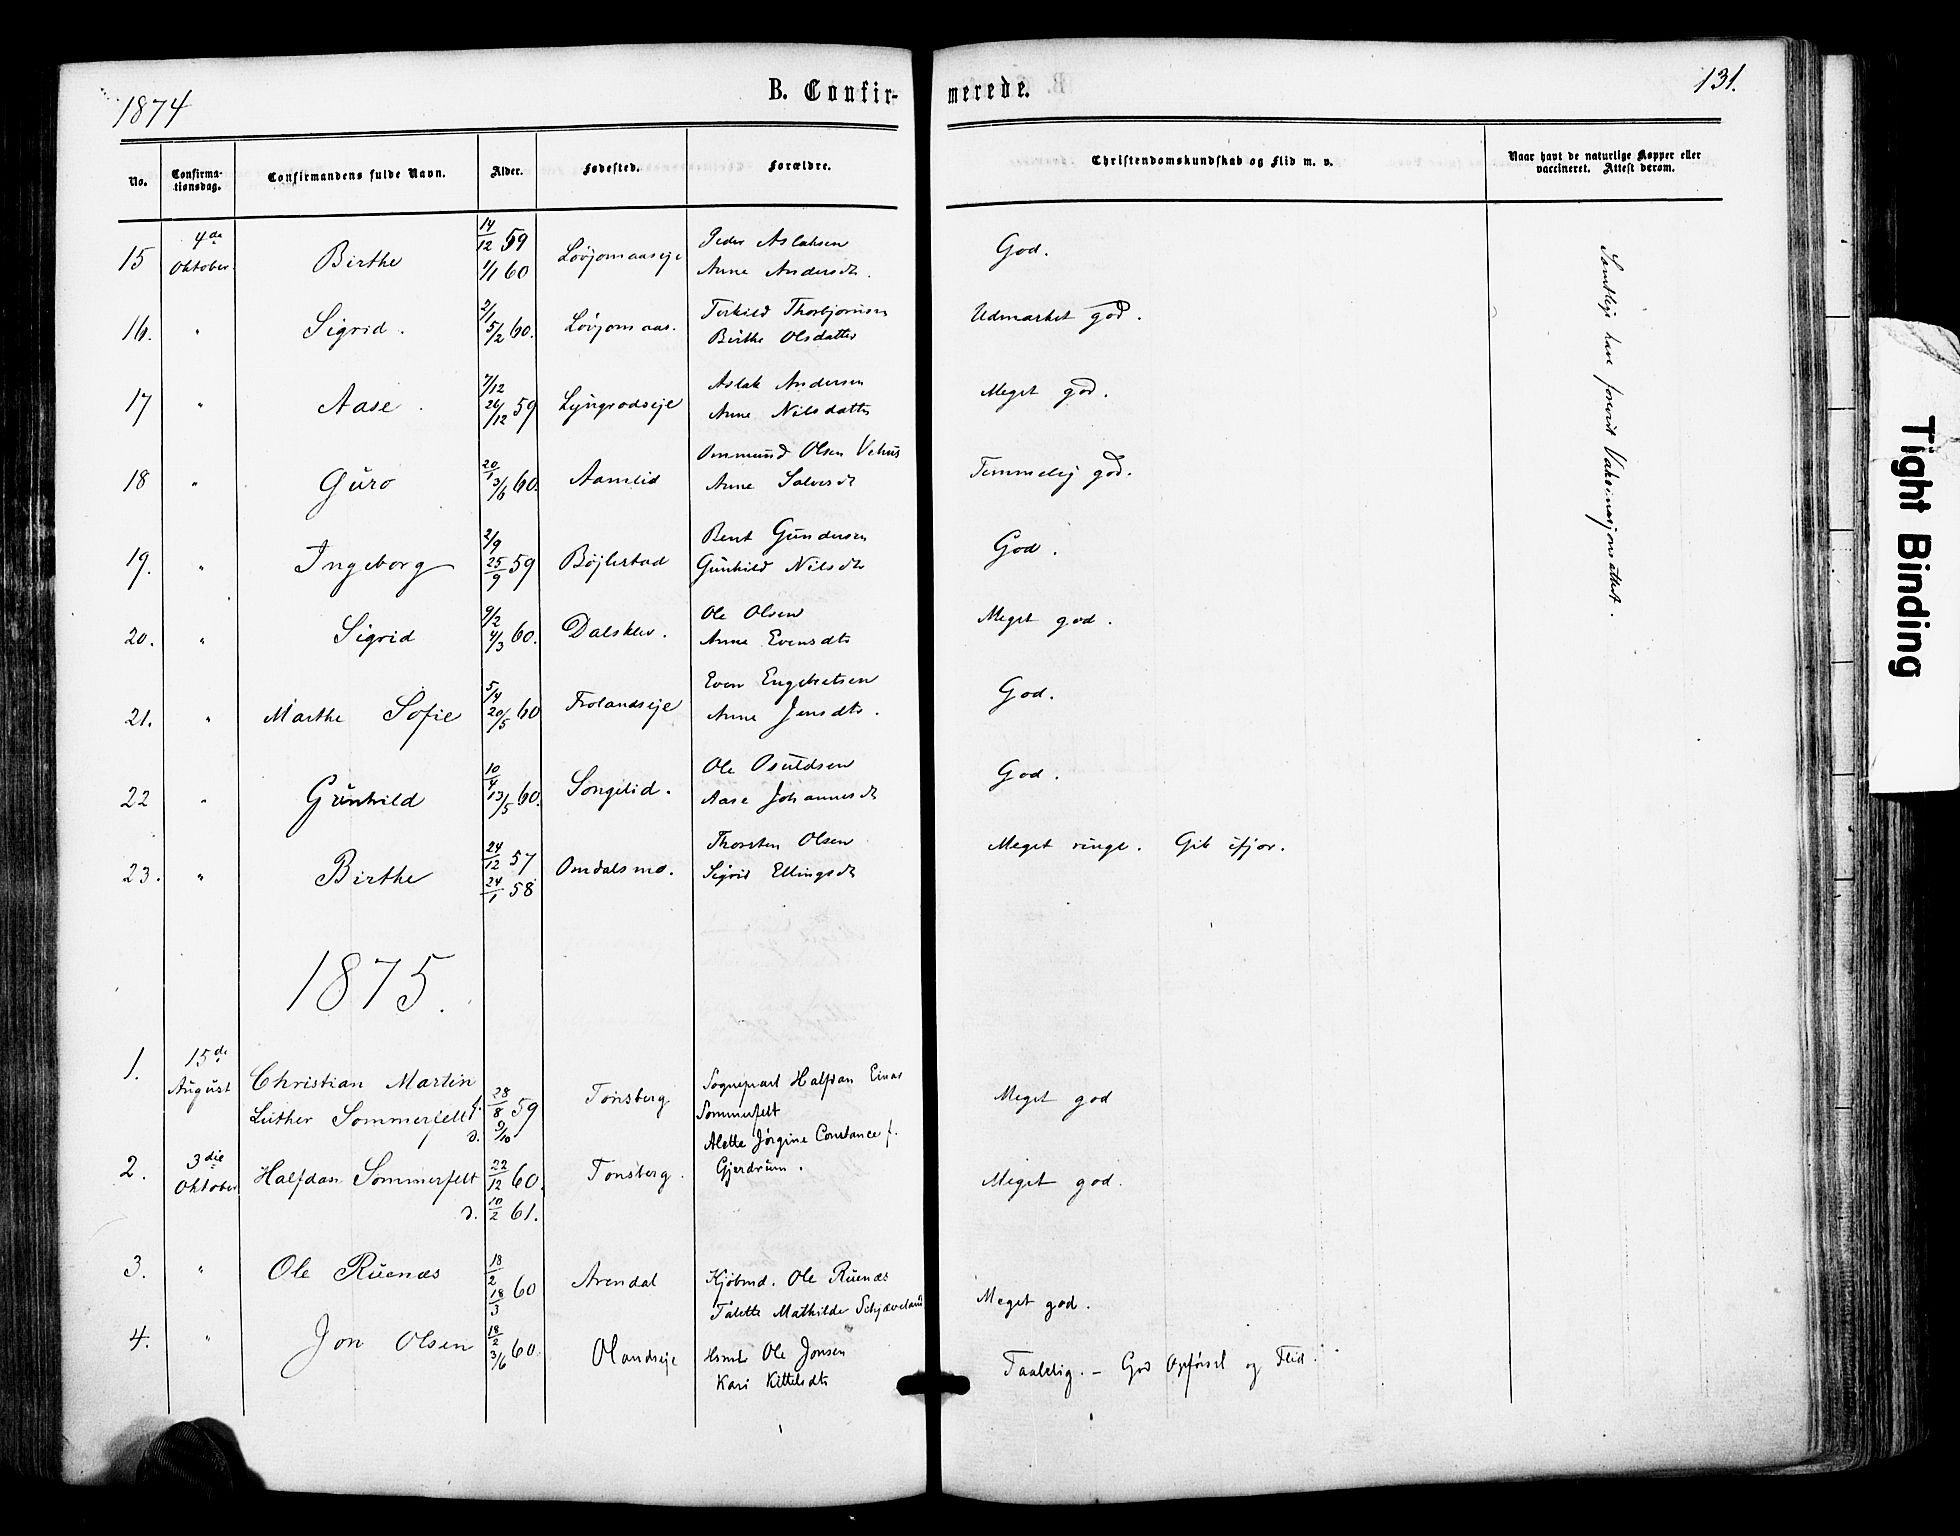 1874
B. Confir-
merede.
131.
No.
Confirma-
tionsdag.
Confirmandens fulde Navn.
Alder.
Fødested.
Forældre.
Christendomskundskab og Flid m. v.
Naar havt de naturlige Kopper eller
vaccineret. Attest derom.
15 4de Oktober. Birthe 14/12 59 1/1 60 Løvjomaaseje Peder Aslaksen Anne Andersdt. God.
16. " Sigrid. 2/1 5/2 60. Løvjomaas. Terkild Thorbjørnsen Birthe Olsdatter Udmærket god.
17 " Aase. 7/12 26/12 59 Lyngrodseje Aslak Andersen Anne Nilsdatter Meget god.
18 " Guro 20/1 3/6 60. Aamlid Ommund Olsen Vehus Anne Salvesdt Temmelig god.
19. " Ingeborg 2/9 25/9 59 Bøjlestad Bent Gundersen Gunhild Nilsdtr God.
20. " Sigrid 9/2 4/3 60. Dalsklev. Ole Olsen Anne Evensdtr Meget god.
21. " Marthe Sofie 5/4 20/5 60 Frolandseje Even Engebretsen Anne Jensdtr. God.
22 " Gunhild 10/4 13/5 60. Songelid. Ole Osuldsen Aase Johannesdt God.
23. " Birthe 24/12 57 24/1 58 Omdalsmo. Thorsten Olsen Sigrid Ellingsdt Meget ringe. Gik ifjor.
Samtlige have forevist Vaksinasjonsattest.
1875.
1. 15de August Christian Martin Luther Sommerfelt f. 28/8 59 d. 9/10 Tønsberg Sogneprest Halfdan Einar Sommerfelt Alette Jørgine Constance f. Gjerdrum. Meget god
2. 3die Oktober Halfdan Sommerfelt 22/12 60. d. 10/2 61. Tønsberg. Meget god.
3. " Ole Ruenæs 18/2 18/3 60 Arendal Kjøbmd. Ole Ruenæs Talette Mathilde Schjæveland Meget god.
4. " Jon Olsen 18/2 3/6 60. Olandseje Hsmd. Ole Jonsen Kari Kittelsdtr Taalelig. – God Opførsel og Flid.
Tight Binding